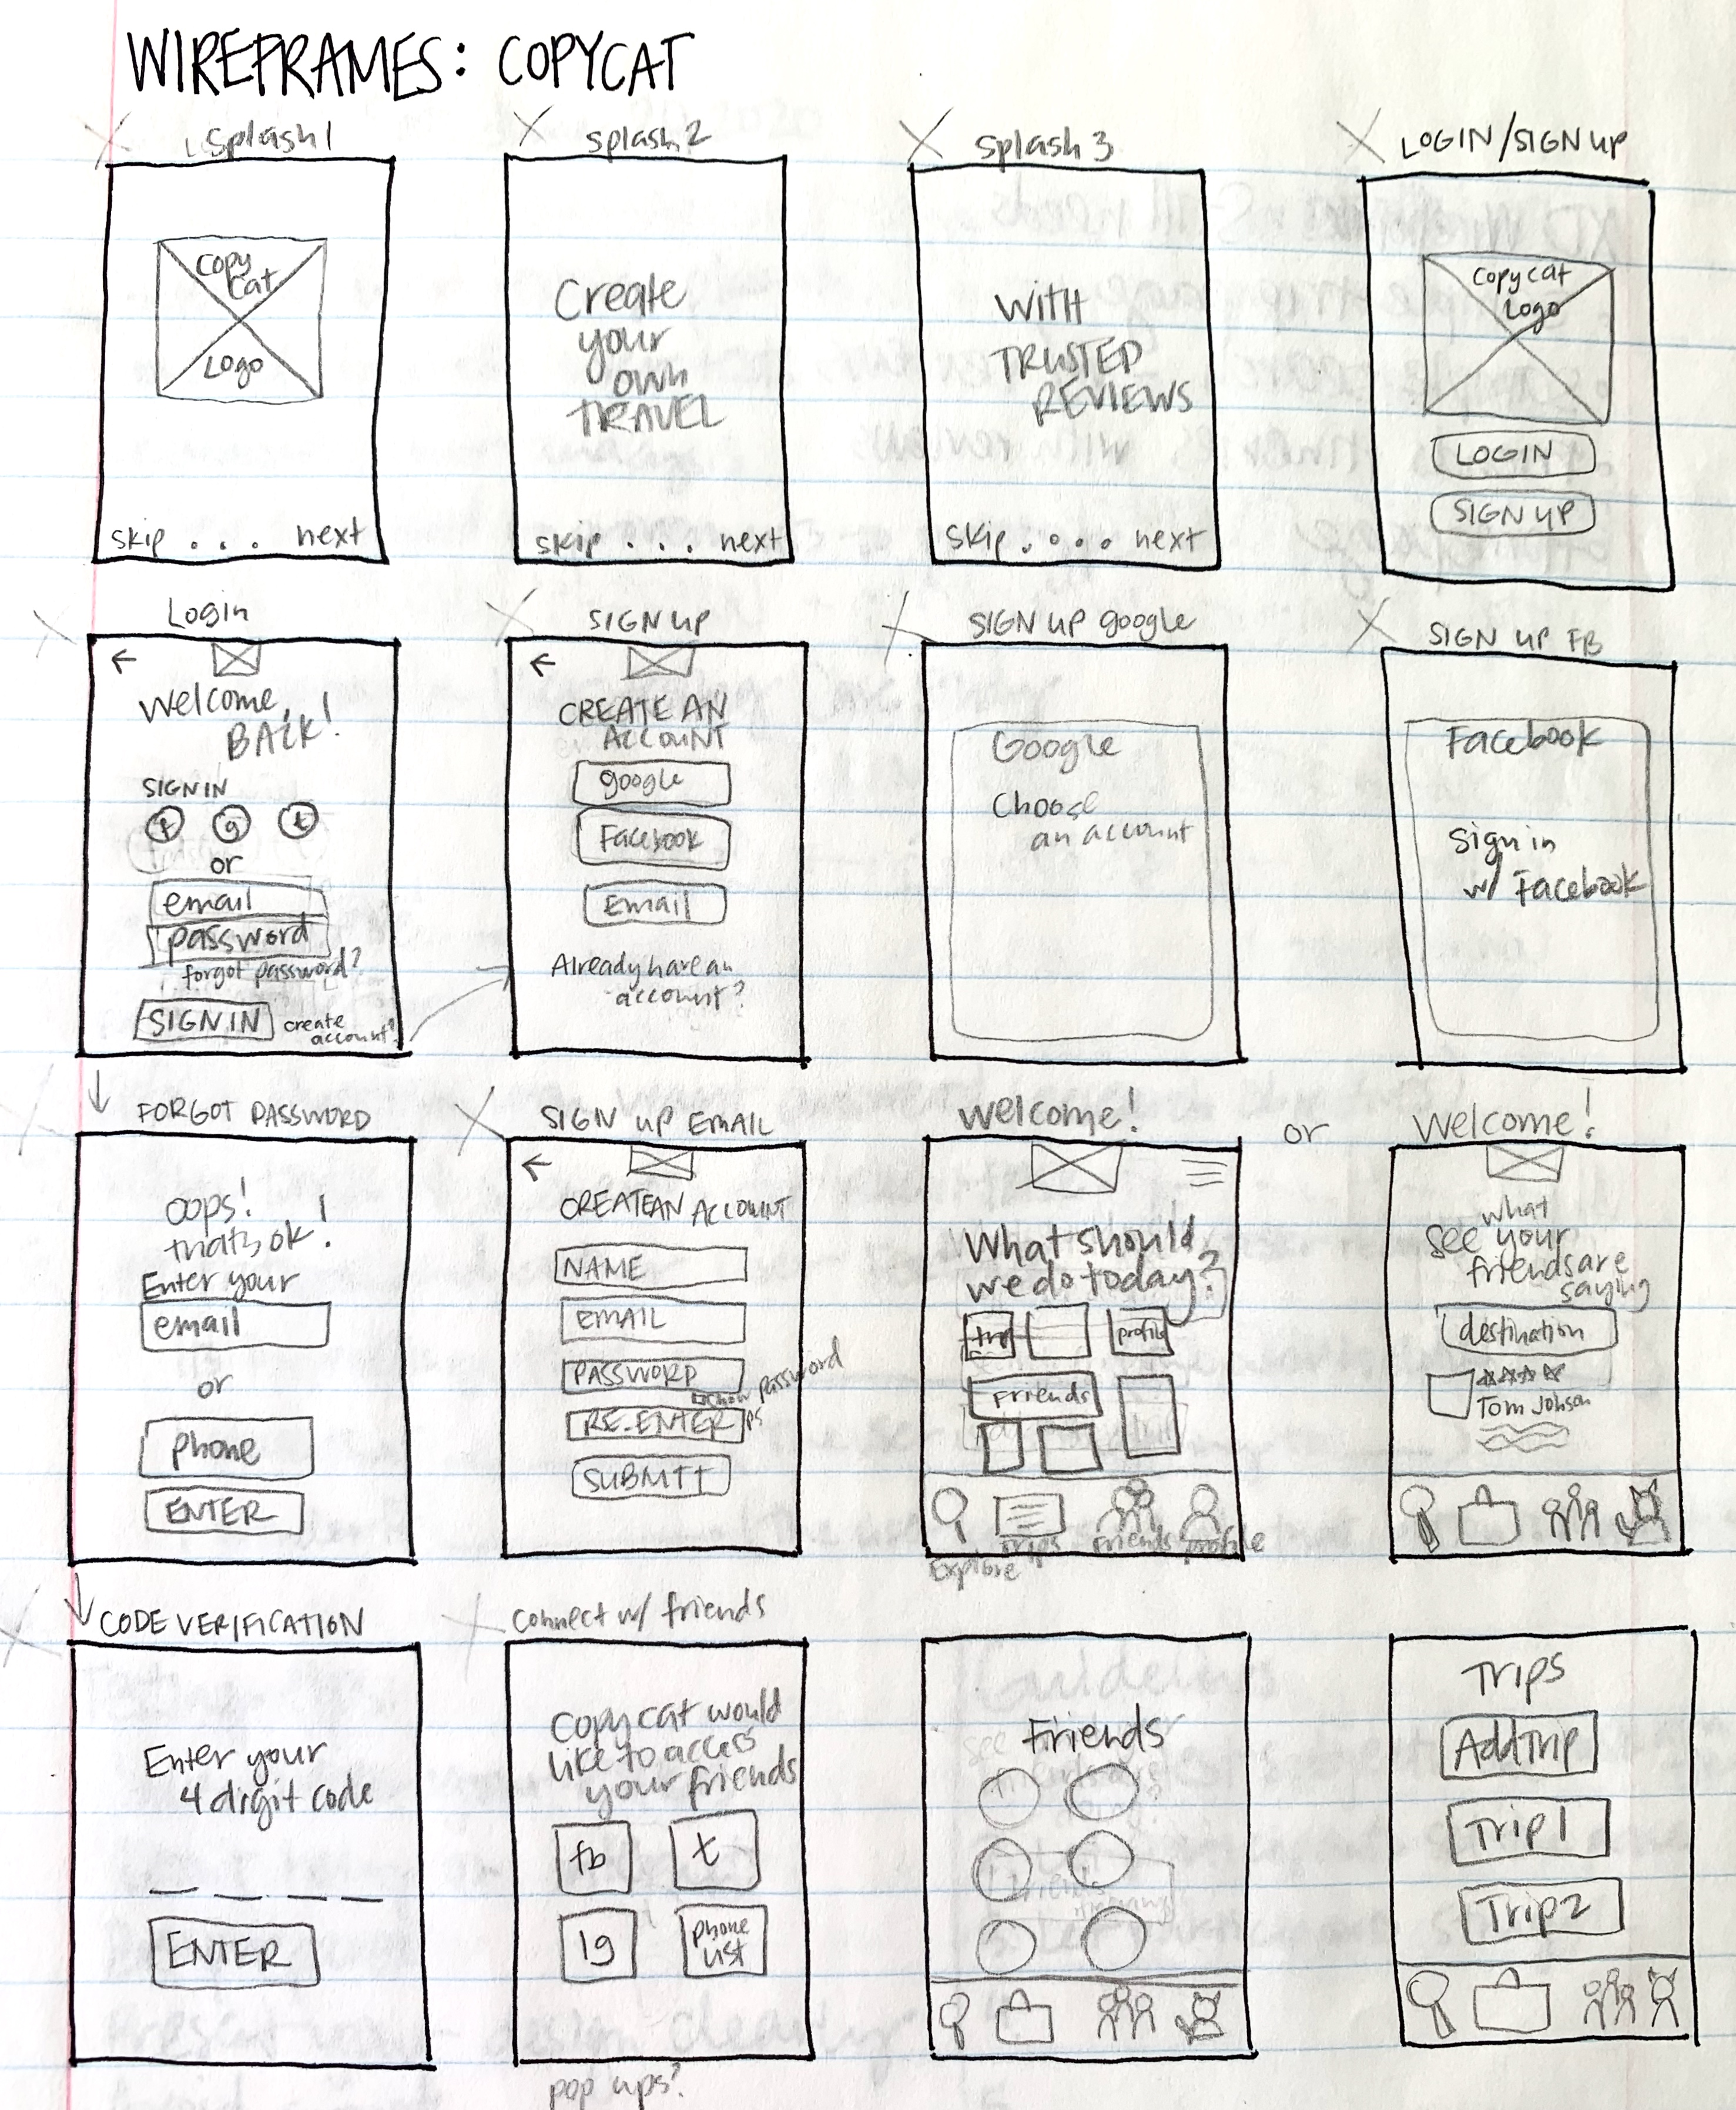 WIREFRAMES: COPYCAT
Splash 1
Copy
Cat
Logo
skip . . . next
Splash 2
Create
your
own
TRAVEL
skip . . . next
Splash 3
WITH
TRUSTED
REVIEWS
skip . . . . next
LOGIN/SIGN UP
Copy cat
Logo
LOGIN
SIGN UP
Login
←
Welcome,
BACK!
SIGN IN
f g t
or
email
password
forgot password?
SIGN IN
create
account?
SIGN UP
←
CREATE AN
ACCOUNT
google
Facebook
Email
Already have an
account?
SIGN UP google
Google
Choose
an account
SIGN UP FB
Facebook
Sign in
w/ Facebook
FORGOT PASSWORD
Oops!
thats ok!
Enter your
email
or
phone
ENTER
SIGN UP EMAIL
←
CREATE AN ACCOUNT
NAME
EMAIL
PASSWORD
show password
RE-ENTER ps
SUBMIT
Welcome!
What should
we do today?
trip
profile
Friends
Explore
Trips
Friends
profile
or
Welcome!
what
see your
friends are
saying
destination
Tom Johson
CODE VERIFICATION
Enter your
4 digit code
ENTER
Connect w/ friends
Copycat would
like to access
your friends
fb
t
Ig
phone
list
pop ups?
Friends
Trips
Add Trip
Trip 1
Trip 2